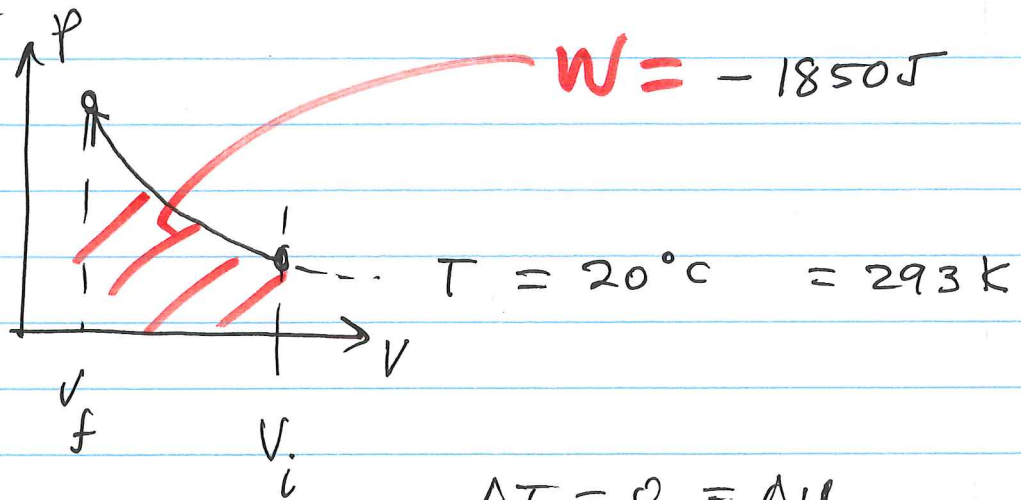 P
W = - 1850J
T = 20°C = 293 K
V
V f
V i
ΔT = 0 = ΔU